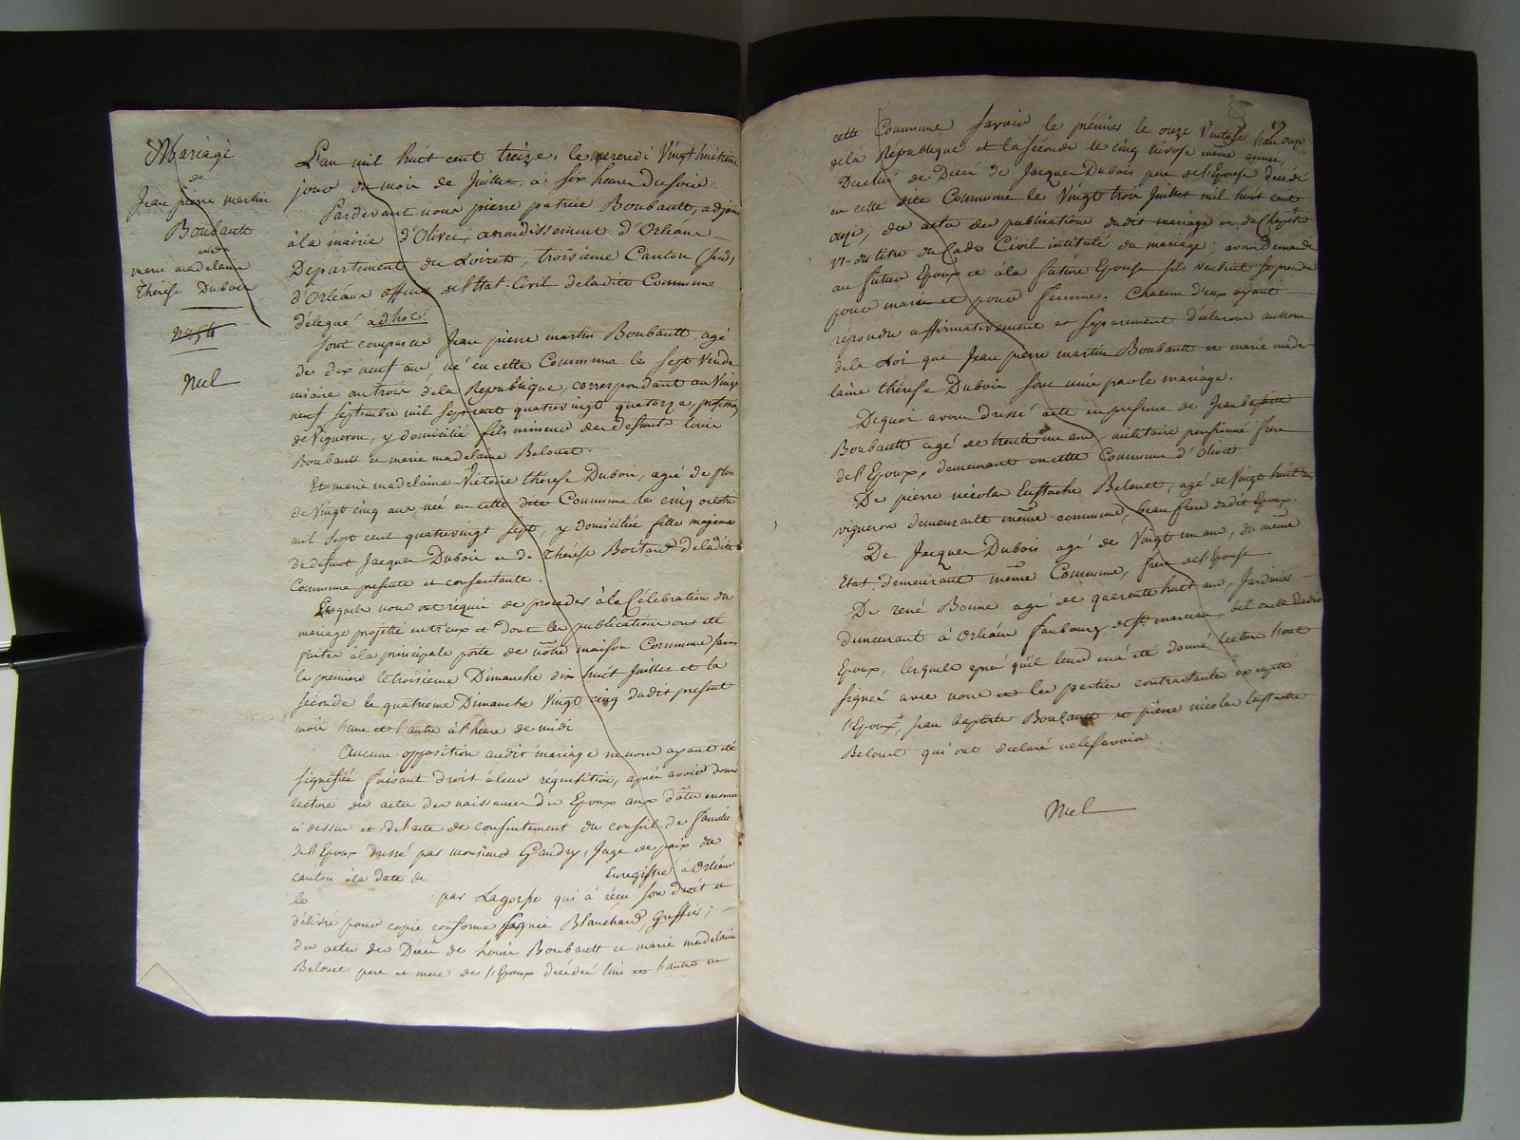 Mariage
de
Jean pierre martin
Boubault
avec
marie madelaine
Thérèse Dubois
Nul
L'an mil huit cent treize, le mercredi Vingt huitieme
jour du mois de Juillet, à six heures du soir.
Pardevant nous pierre patrice Boubault, adjoint
à la mairie d'Olivet, arrondissement d'Orléans
Département du Loiret, troisième Canton (sud)
d'Orléans officier de l'Etat-Civil de la dite Commune
délégué ad hoc.
Sont comparus Jean pierre martin Boubault, agé
de dix neuf ans, né en cette Commune le sept Vende
miaire an trois de la République, correspondant au Vingt
neuf septembre mil sept cent quatrevingt quatorze, profession
de Vigneron, y domicilié fils mineur des defunts Louis
Boubault et marie madelaine Belouet.
Et marie madelaine Victoire thérèse Dubois, agée de plus
de Vingt cinq ans, née en cette dite Commune le cinq octobre
mil sept cent quatrevingt sept, y domiciliée fille majeure
de défunt Jacques Dubois et de Thérèse de la dite
Commune presente et consentante.
Lesquels nous ont réquis de proceder à la Célébration du
mariage projetté entr'eux et dont les publications ont été
faites à la principale porte de notre maison Commune savoir
la premiere le troisieme Dimanche dix huit Juillet et la
séconde le quatrieme Dimanche Vingt cinq dudit present
mois l'une et l'autre à l'heure de midi
Aucune opposition audit mariage ne nous ayant été
signifiée faisant droit à leur réquisition, après avoir donné
lecture des actes de naissances des Epoux aux dates
ci dessus et de l'acte de consentement du conseil de famille
de l'Epoux dressé par monsieur Gaudry, Juge de paix du
canton à la date de enregistré à Orléans
le par Lagorse qui à reçu son droit et
délivré pour copie conforme signée Blanchard, Greffier;
des actes de Décès de Louis Boubault et marie madelaine
Belouet pere et mere de l'Epoux décédés l'un et l'autre en
cette Commune savoir le prémier le onze Ventose an onze
de la République et la séconde le cinq nivose même année,
De celui de Décès de Jacques Dubois pere de l'Epouse décédé
en cette dite Commune le Vingt trois Juillet mil huit cent
onze, des actes de publications dudit mariage et du Chapitre
VI du titre du Code Civil intitulé du mariage; avons demandé
au futur Epoux et à la future Epouse s'ils veulent se prendre
pour mari et pour femme. Chacun d'eux ayant
répondu affirmativement et séparement déclarons au nom
de la Loi que Jean pierre martin Boubault et marie made
laine thérèse Dubois sont unis par le mariage.
De quoi avons dressé acte en presence de Jean baptiste
Boubault agé de trente un ans militaire pensionné frere
de l'Epoux, demeurant en cette Commune d'Olivet
De pierre nicolas Eustache Belouet, agé de Vingt huit ans
vigneron demeurant même commune, beau frere dudit Epoux.
De Jacques Dubois agé de Vingt un ans, de même
Etat demeurant même Commune, frere de l'Epouse
De rené Bonne agé de quarente huit ans, Jardinier
demeurant à Orléans faubourg de St. marceau,
Epoux, lesquels après qu'il leur en à été donné lecture l'ont
signée avec nous et les parties contractantes excepté
l'Epoux, Jean baptiste Boubault et pierre nicolas Eustache
Belouet qui ont declaré ne le savoir
Nul